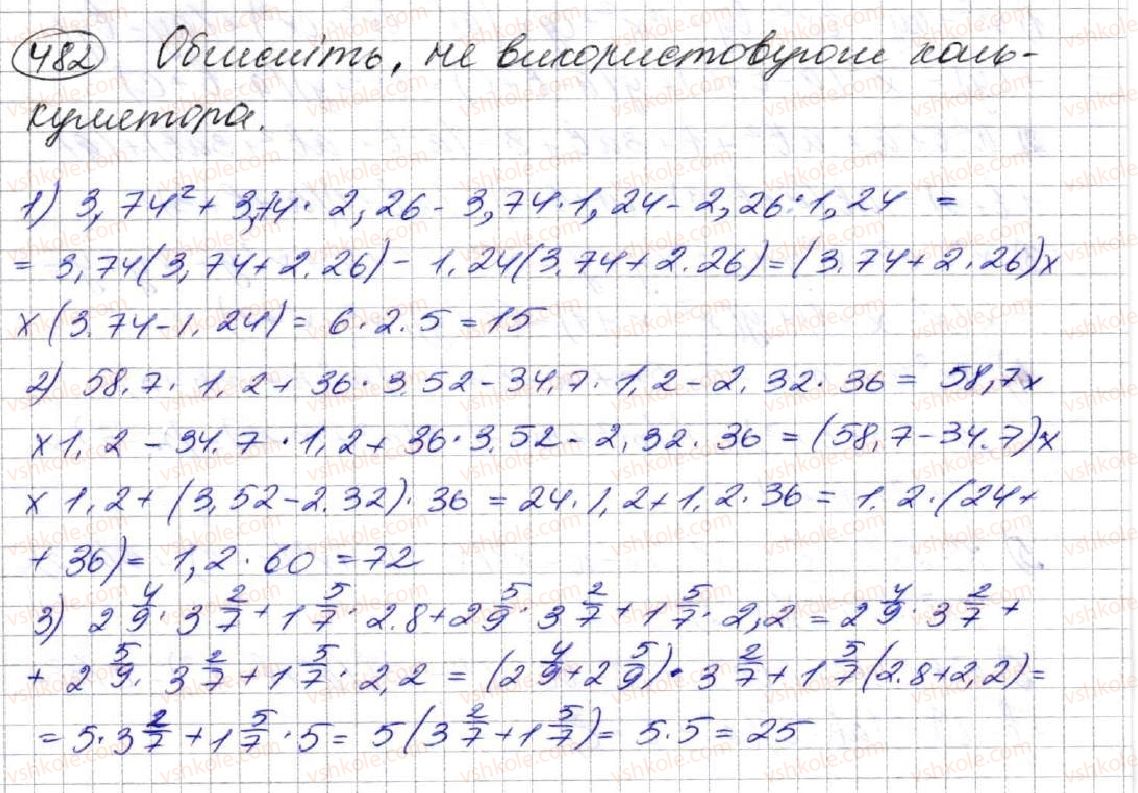 482 Обчисліть, не використовуючи каль-
кулятора.
1) 3,74² + 3,74 · 2,26 - 3,74 · 1,24 - 2,26 · 1,24 =
= 3,74(3,74 + 2.26) - 1.24(3.74 + 2.26) = (3.74 + 2.26) х
х (3.74 - 1.24) = 6 · 2.5 = 15
2) 58.7 · 1,2 + 36 · 3,52 - 34,7 · 1,2 - 2,32 · 36 = 58,7 х
х 1,2 - 34.7 · 1,2 + 36 · 3,52 - 2,32 · 36 = (58,7 - 34.7) х
х 1,2 + (3,52 - 2.32) · 36 = 24 · 1,2 + 1,2 · 36 = 1.2 · (24 +
+ 36) = 1,2 · 60 = 72
3) 2 4/9 · 3 2/7 + 1 5/7 · 2.8 + 2 5/9 · 3 2/7 + 1 5/7 · 2,2 = 2 4/9 · 3 2/7 +
+ 2 5/9 · 3 2/7 + 1 5/7 · 2,2 = (2 4/9 + 2 5/9) · 3 2/7 + 1 5/7 (2.8 + 2,2) =
= 5 · 3 2/7 + 1 5/7 · 5 = 5 (3 2/7 + 1 5/7) = 5 · 5 = 25